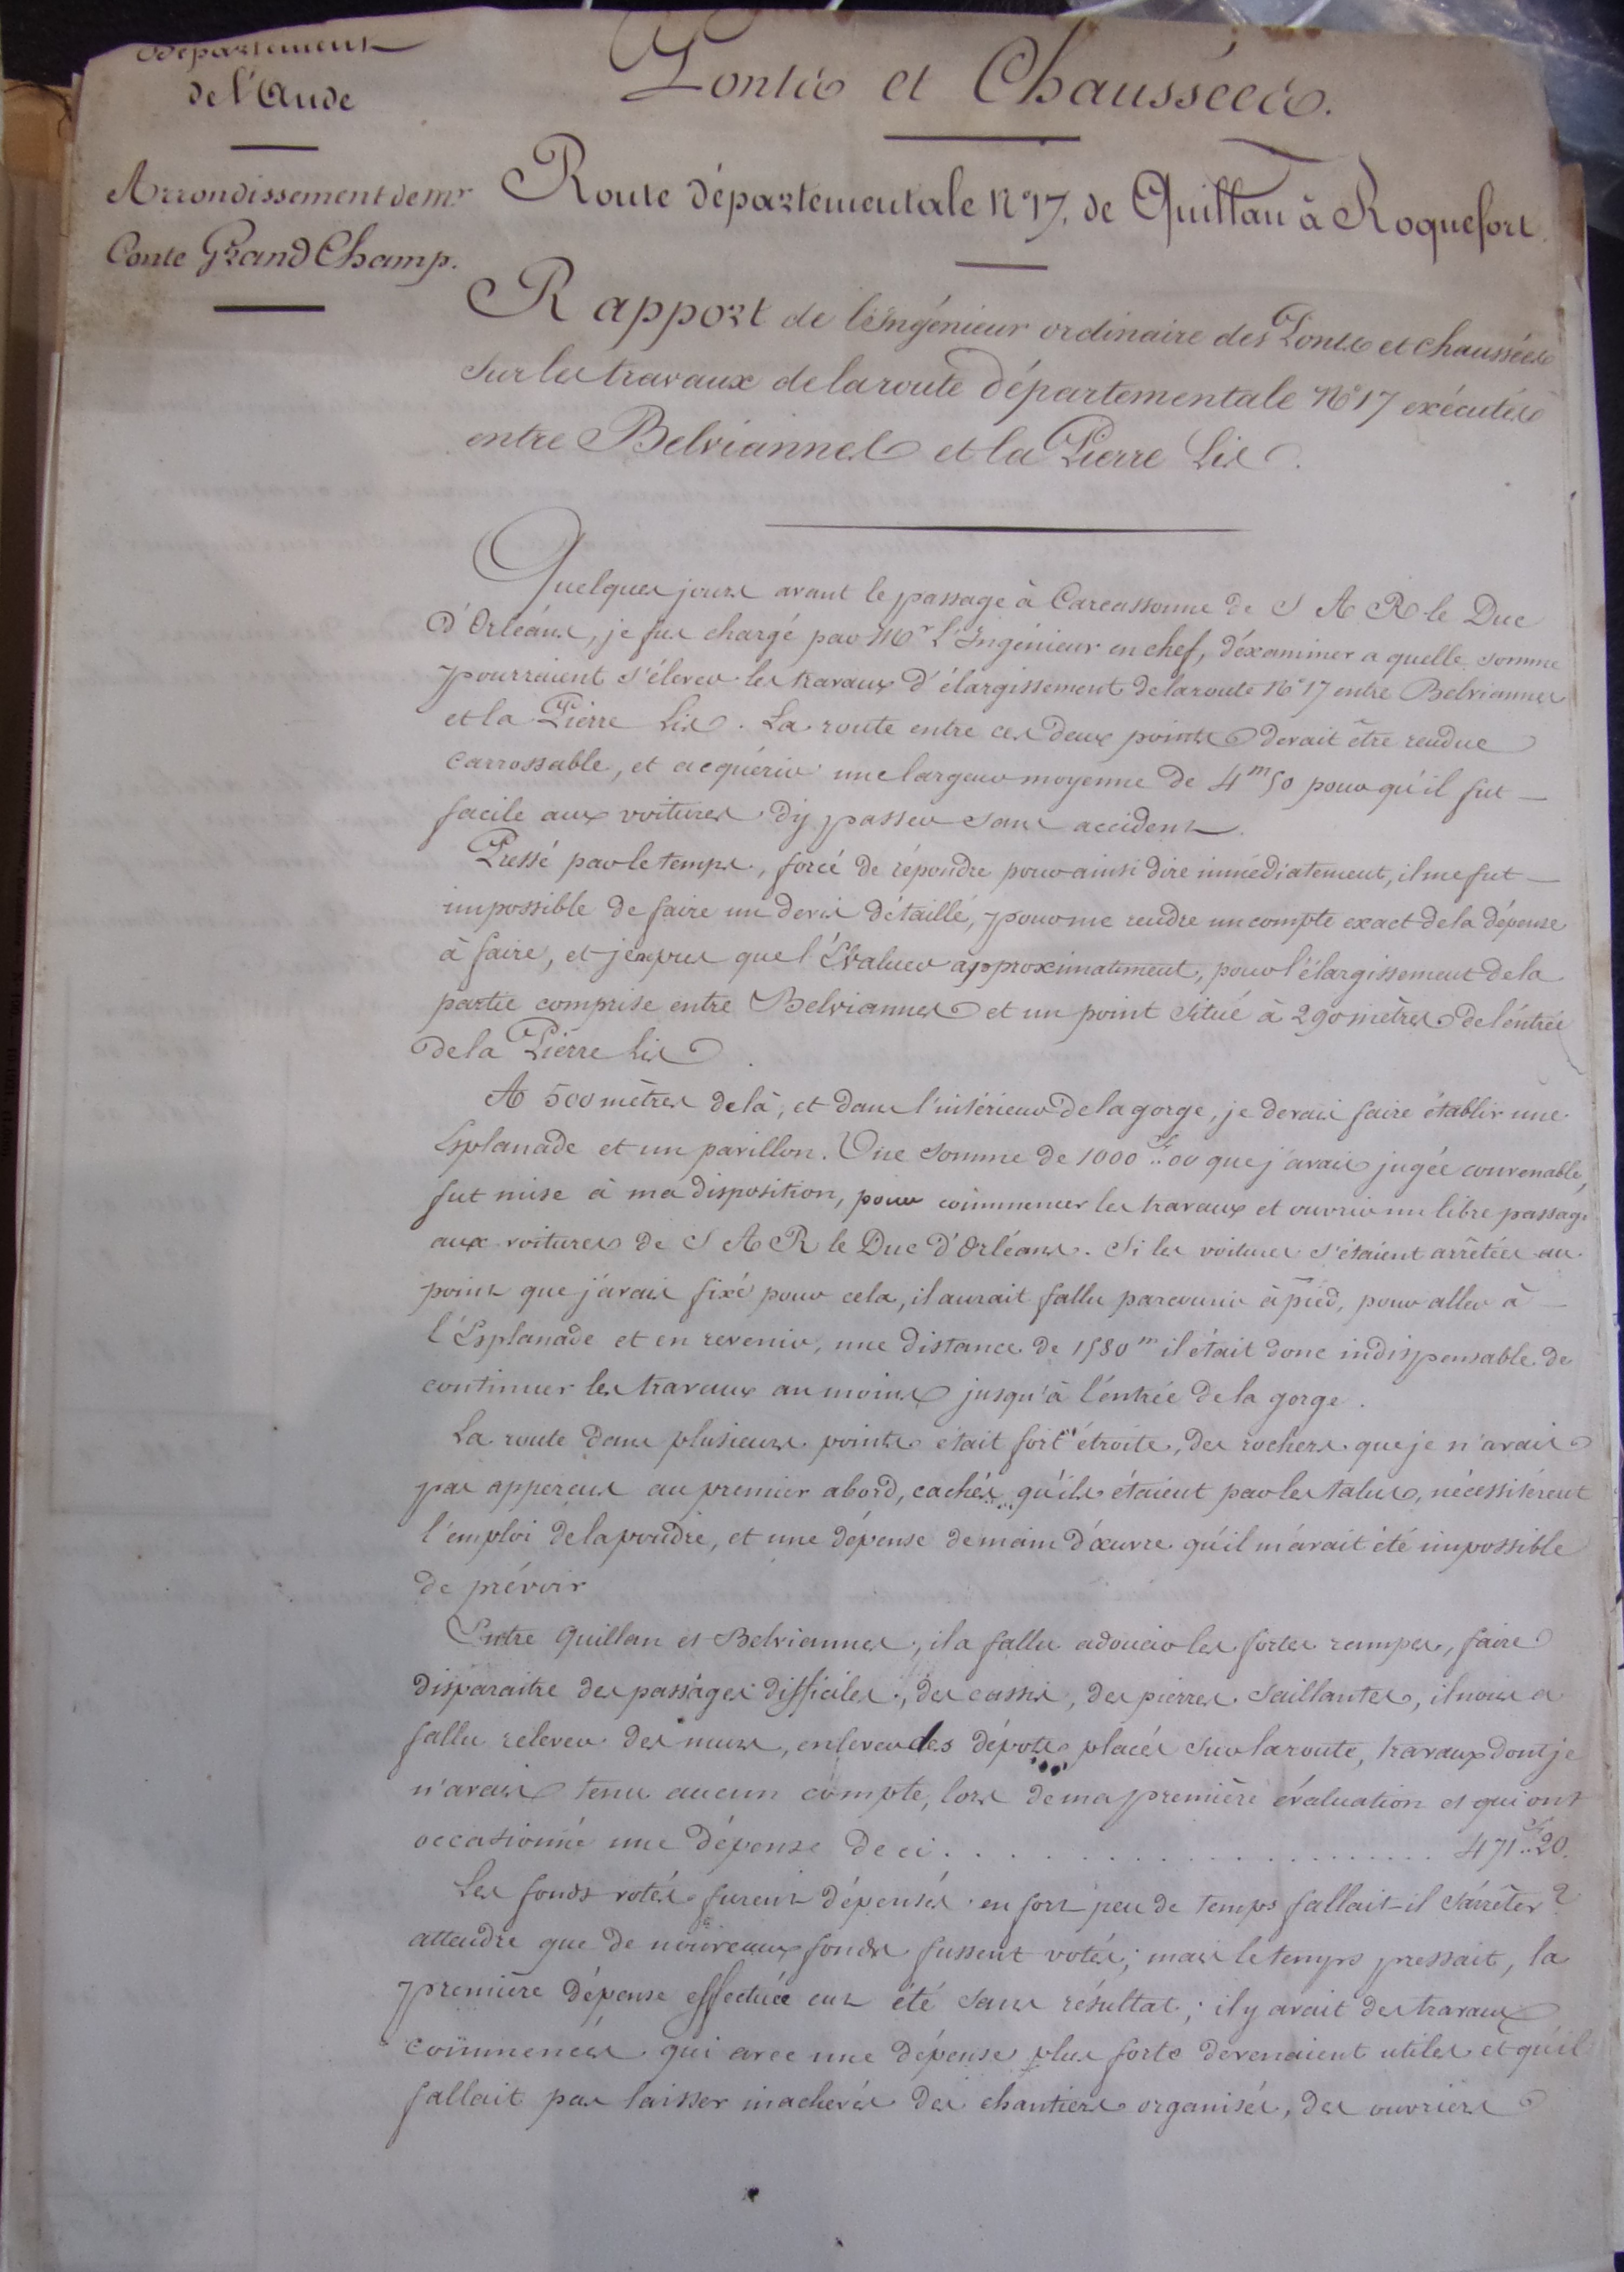 Département
de l'Aude
Arrondissement de Mr
Conte Grand Champ.
Ponts et Chaussées.
Route départementale N° 17, de Quillan à Roquefort.
Rapport de l'Ingénieur ordinaire des Ponts et chaussées
sur les travaux de la route départementale N° 17 exécutés
entre Belviannes et la Pierre Lis.
Quelques jours avant le passage à Carcassonne de S A R le Duc
d'Orléans, je fus chargé par Mr l'Ingénieur en chef, d'éxaminer a quelle somme
pourraient s'élever les travaux d'élargissement de la route N° 17 entre Belviannes
et la Pierre Lis. La route entre ces deux points devait être rendue
carrossable, et acquérir une largeur moyenne de 4m50 pour qu'il fut
facile aux voitures d'y passer sans accident.
Pressé par le temps, forcé de répondre pour ainsi dire immédiatement, il me fut
impossible de faire un devis détaillé, pour me rendre un compte exact de la dépense
à faire, et je ne pus que l'Evaluer approximatiment, pour l'élargissement de la
partie comprise entre Belviannes et un point situé à 290 mètres de l'entrée
de la Pierre Lis.
A 500 mètres de là, et dans l'intérieur de la gorge, je devais faire établir une
Esplanade et un pavillon. Une somme de 1000 f..00 que j'avais jugée convenable,
fut mise à ma disposition, pour commencer les travaux et ouvrir un libre passage
aux voitures de S A R le Duc d'Orléans. Si les voitures s'étaient arrêtées au
point que j'avais fixé pour cela, il aurait fallu parcourir à pied, pour aller à
l'Esplanade et en revenir, une distance de 1580m il était donc indispensable de
continuer les travaux au moins jusqu'à l'entrée de la gorge.
La route dans plusieurs points était fort étroite, des rochers que je n'avais
pas apperçus au premier abord, cachés qu'ils étaient par les talus, nécessitèrent
l'emploi de la poudre, et une dépense de main d'œuvre qu'il m'avait été impossible
de prévoir
Entre Quillan et Belviannes, il a fallu adoucir les fortes rampes, faire
disparaitre des passages difficiles, des cassis, des pierres saillantes, il nous a
fallu relever des murs, enlever des dépots placés sur la route, travaux dont je
n'avais tenu aucun compte, lors de ma première évaluation et qui ont
occasionné une dépense de ci . . . . . . . . . . . . . . . . . . . . 471 f..20.
Les fonds votés furent dépensés en fort peu de temps fallait-il s'arrêter?
attendre que de nouveaux fonds fussent votés; mais le temps pressait, la
première dépense effectuée eut été sans résultat; il y avait des travaux
commencés qui avec une dépense plus forte devenaient utiles et qu'il
fallait pas laisser inachevés des chantiers organisés, des ouvriers